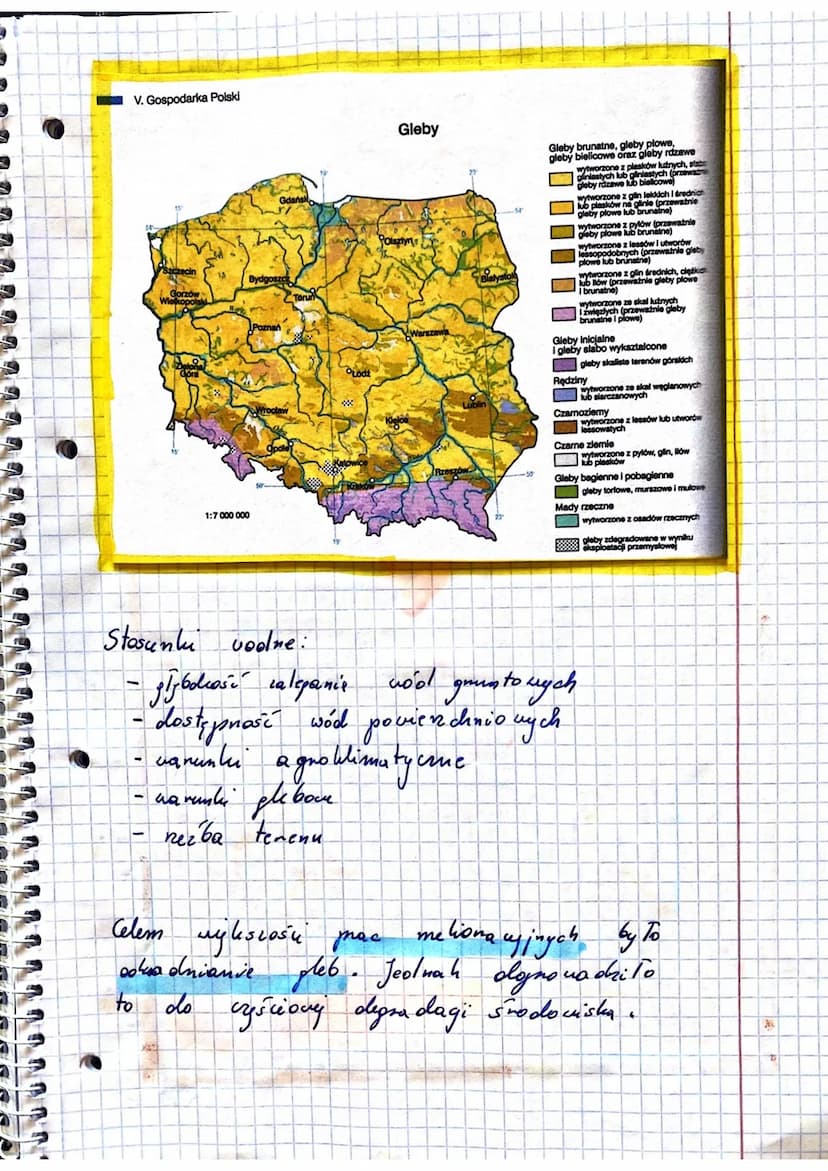 V. Gospodarka Polski
Gleby
Gleby brunatne, gleby płowe,
gleby bielicowe oraz gleby rdzawe
wytworzone z piasków luźnych, słabo
gliniastych lub gliniastych (przeważnie
gleby rdzawe lub bielicowe)
wytworzone z glin lekkich i średnich
lub piasków na glinie (przeważnie
gleby płowe lub brunatne)
wytworzone z pyłów (przeważnie
gleby płowe lub brunatne)
wytworzone z lessów i utworów
lessopodobnych (przeważnie gleby
płowe lub brunatne)
wytworzone z glin średnich, ciężkich
lub iłów (przeważnie gleby płowe
i brunatne)
wytworzone ze skał luźnych
i zwięzłych (przeważnie gleby
brunatne i płowe)
Gleby inicjalne
i gleby słabo wykształcone
gleby skaliste terenów górskich
Rędziny
wytworzone ze skał węglanowych
lub siarczanowych
Czarnoziemy
wytworzone z lessów lub utworów
lessowatych
Czarne ziemie
wytworzone z pyłów, glin, iłów
lub piasków
Gleby bagienne i pobagienne
gleby torfowe, murszowe i mułowe
Mady rzeczne
wytworzone z osadów rzecznych
gleby zdegradowane w wyniku
eksploatacji przemysłowej
Gdańsk
Olsztyn
Szczecin
Bydgoszcz
Białystok
Gorzów
Wielkopolski
Toruń
Poznań
Warszawa
Zielona
Góra
Łódź
Wrocław
Lublin
Kielce
Opole
Katowice
Kraków
Rzeszów
1:7 000 000
Stosunki wodne:
- głębokość zalegania wód gruntowych
- dostępność wód powierzchniowych
- warunki agroklimatyczne
- warunki glebowe
- rzeźba terenu
Celem większości prac melioracyjnych było
odwadnianie gleb. Jednak doprowadziło
to do częściowej degradacji środowiska.